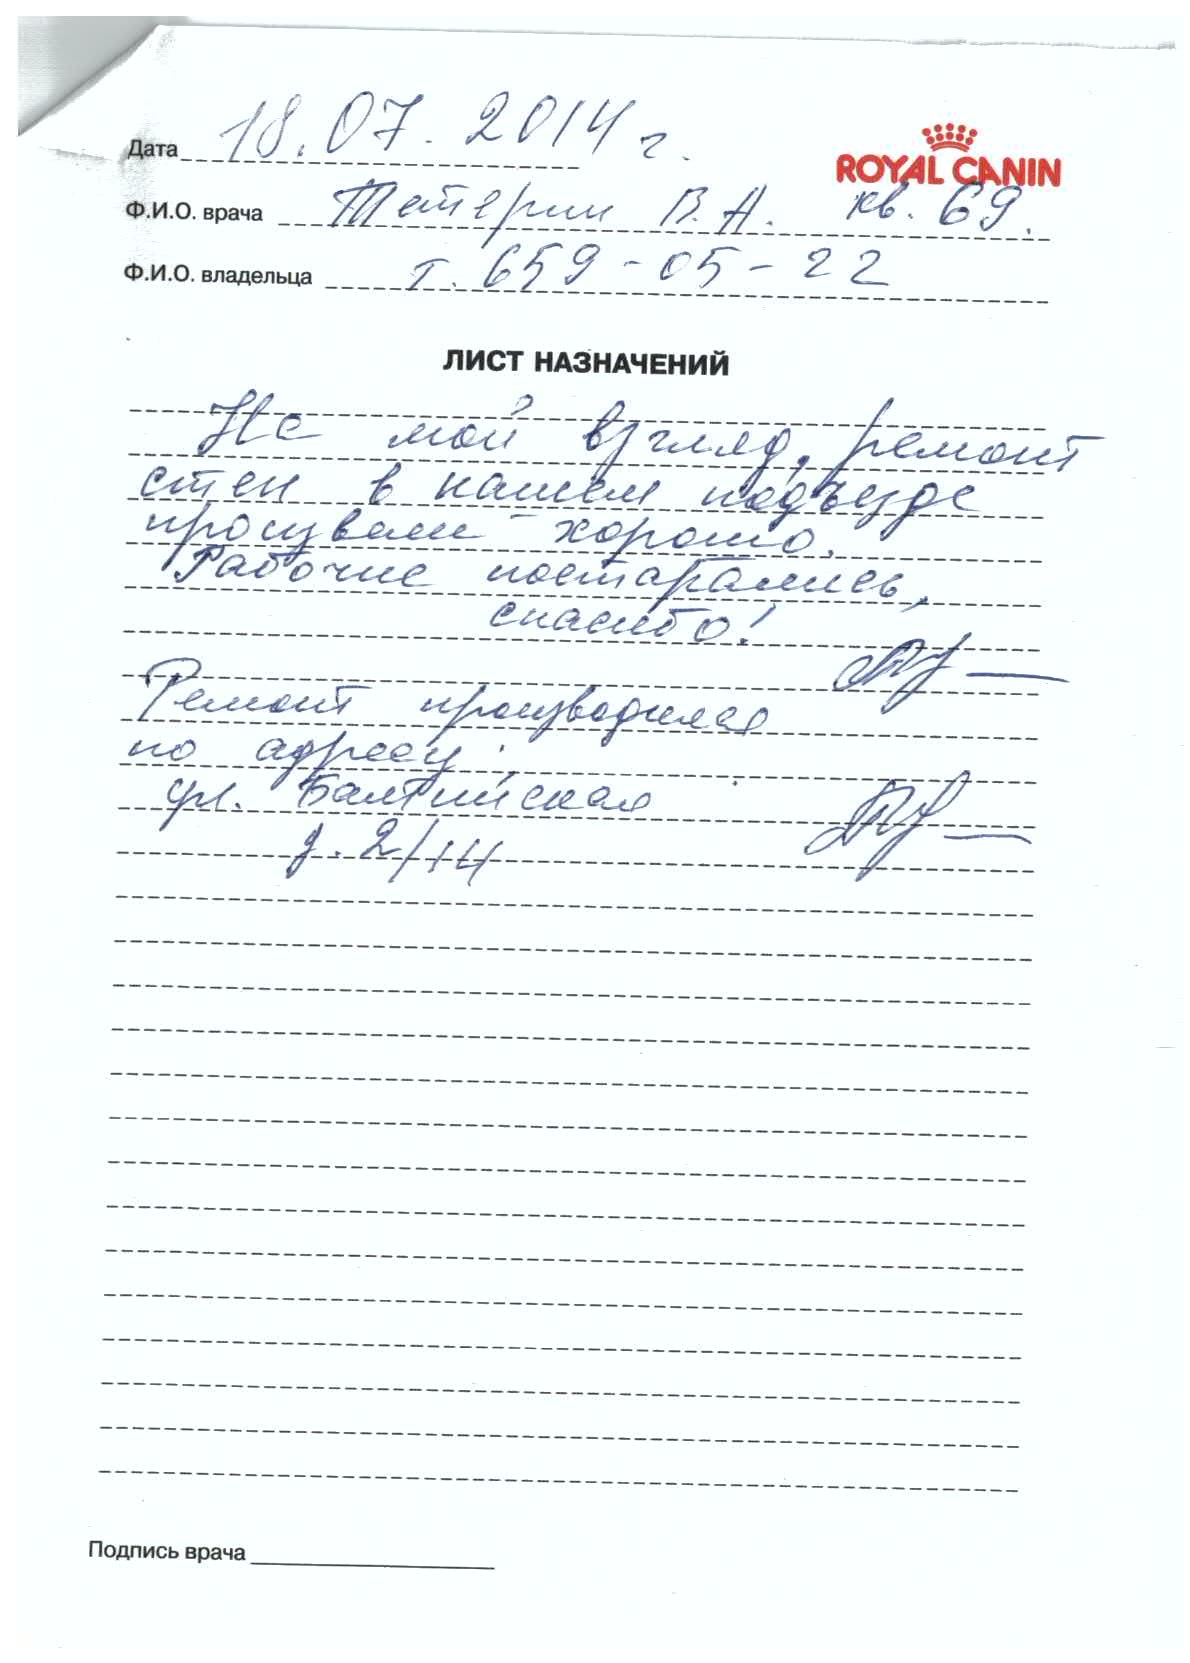 Дата 18.07.2014 г.
ROYAL CANIN
Ф.И.О. врача Татерин В.А. кв. 69.
Ф.И.О. владельца т. 659-05-22
ЛИСТ НАЗНАЧЕНИЙ
На мой взгляд, ремонт
стен в нашем подъезде
произвели - хорошо.
Рабочие постарались,
спасибо!
Ремонт производился
по адресу:
ул. Балтийская
д. 2/14
Подпись врача